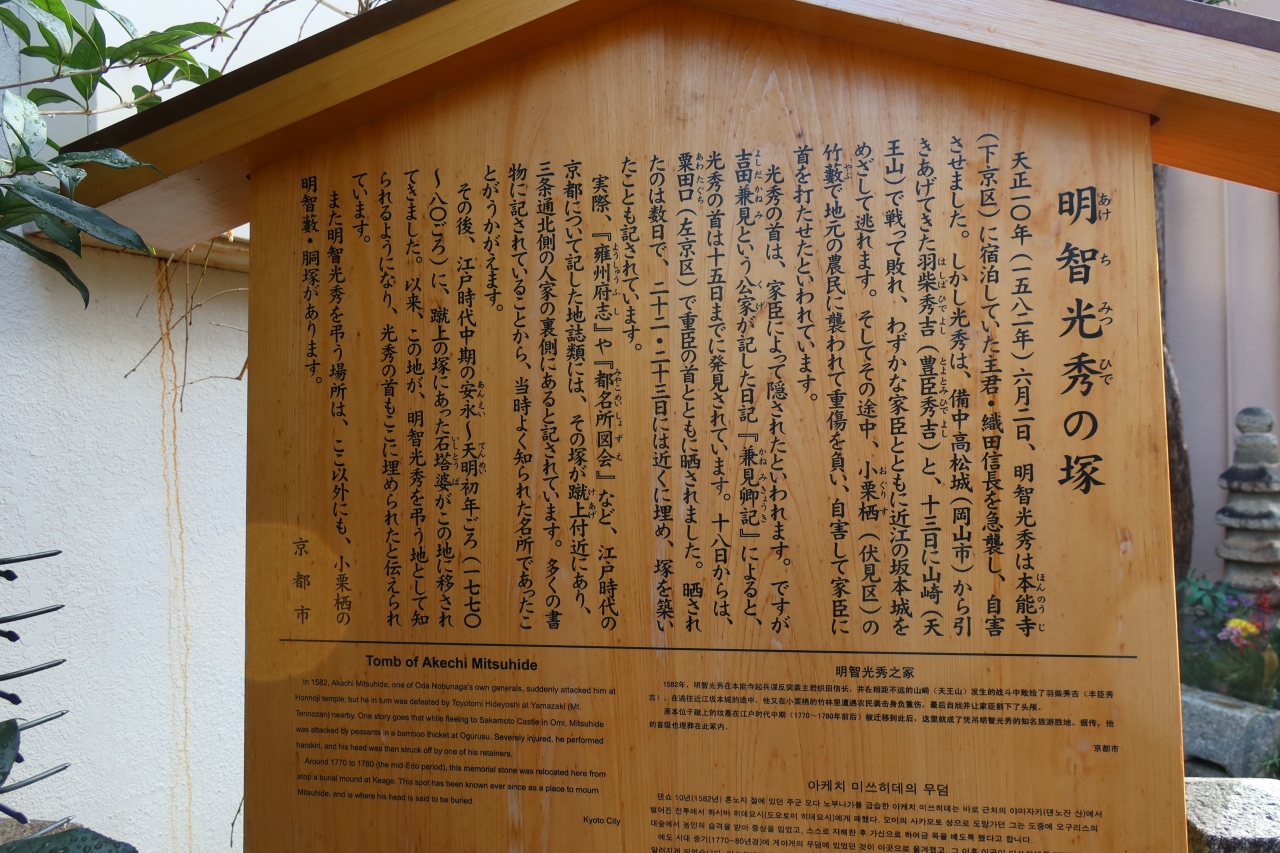 明智光秀の塚
天正一〇年（一五八二年）六月二日、明智光秀は本能寺
（下京区）に宿泊していた主君・織田信長を急襲し、自害
させました。しかし光秀は、備中高松城（岡山市）から引
きあげてきた羽柴秀吉（豊臣秀吉）と、十三日に山崎（天
王山）で戦って敗れ、わずかな家臣とともに近江の坂本城を
めざして逃れます。そしてその途中、小栗栖（伏見区）の
竹藪で地元の農民に襲われて重傷を負い、自害して家臣に
首を打たせたといわれています。
光秀の首は、家臣によって隠されたといわれます。ですが
吉田兼見という公家が記した日記『兼見卿記』によると、
光秀の首は十五日までに発見されています。十八日からは、
粟田口（左京区）で重臣の首とともに晒されました。晒され
たのは数日で、二十二・二十三日には近くに埋め、塚を築い
たことも記されています。
実際、『雍州府志』や『都名所図会』など、江戸時代の
京都について記した地誌類には、その塚が蹴上付近にあり、
三条通北側の人家の裏側にあると記されています。多くの書
物に記されていることから、当時よく知られた名所であったこ
とがうかがえます。
その後、江戸時代中期の安永～天明初年ごろ（一七七〇
～八〇ごろ）に、蹴上の塚にあった石塔婆がこの地に移され
てきました。以来、この地が、明智光秀を弔う地として知
られるようになり、光秀の首もここに埋められたと伝えられ
ています。
また明智光秀を弔う場所は、ここ以外にも、小栗栖の
明智藪・胴塚があります。
京都市
Tomb of Akechi Mitsuhide
In 1582, Akechi Mitsuhide, one of Oda Nobunaga's own generals, suddenly attacked him at
Honnoji temple; but he in turn was defeated by Toyotomi Hideyoshi at Yamazaki (Mt.
Tennozan) nearby. One story goes that while fleeing to Sakamoto Castle in Omi, Mitsuhide
was attacked by peasants in a bamboo thicket at Ogurusu. Severely injured, he performed
harakiri, and his head was then struck off by one of his retainers.
Around 1770 to 1780 (the mid-Edo period), this memorial stone was relocated here from
atop a burial mound at Keage. This spot has been known ever since as a place to mourn
Mitsuhide, and is where his head is said to be buried.
Kyoto City
明智光秀之冢
1582年，明智光秀在本能寺起兵谋反突袭主君织田信长，并在相距不远的山崎（天王山）发生的战斗中败给了羽柴秀吉（丰臣秀
吉）。在逃往近江坂本城的途中，他又在小栗栖的竹林里遭遇农民袭击身负重伤，最后自戕并让家臣割下了头颅。
原本位于蹴上的坟墓在江户时代中期（1770～1780年前后）被迁移到此后，这里就成了凭吊明智光秀的知名旅游胜地。据传，他
的首级也埋葬在此冢内。
京都市
아케치 미쓰히데의 무덤
덴쇼 10년(1582년) 혼노지 절에 있던 주군 오다 노부나가를 급습한 아케치 미쓰히데는 바로 근처의 야마자키(덴노잔 산)에서
벌어진 전투에서 하시바 히데요시(도요토미 히데요시)에게 패했다. 오미의 사카모토 성으로 도망가던 그는 도중에 오구리스의
대숲에서 농민의 습격을 받아 중상을 입었고, 스스로 자해한 후 가신으로 하여금 목을 베도록 했다고 합니다.
에도 시대 중기(1770~80년경)에 게아게의 무덤에 있었던 것이 이곳으로 옮겨졌고, 그 이후 이곳이